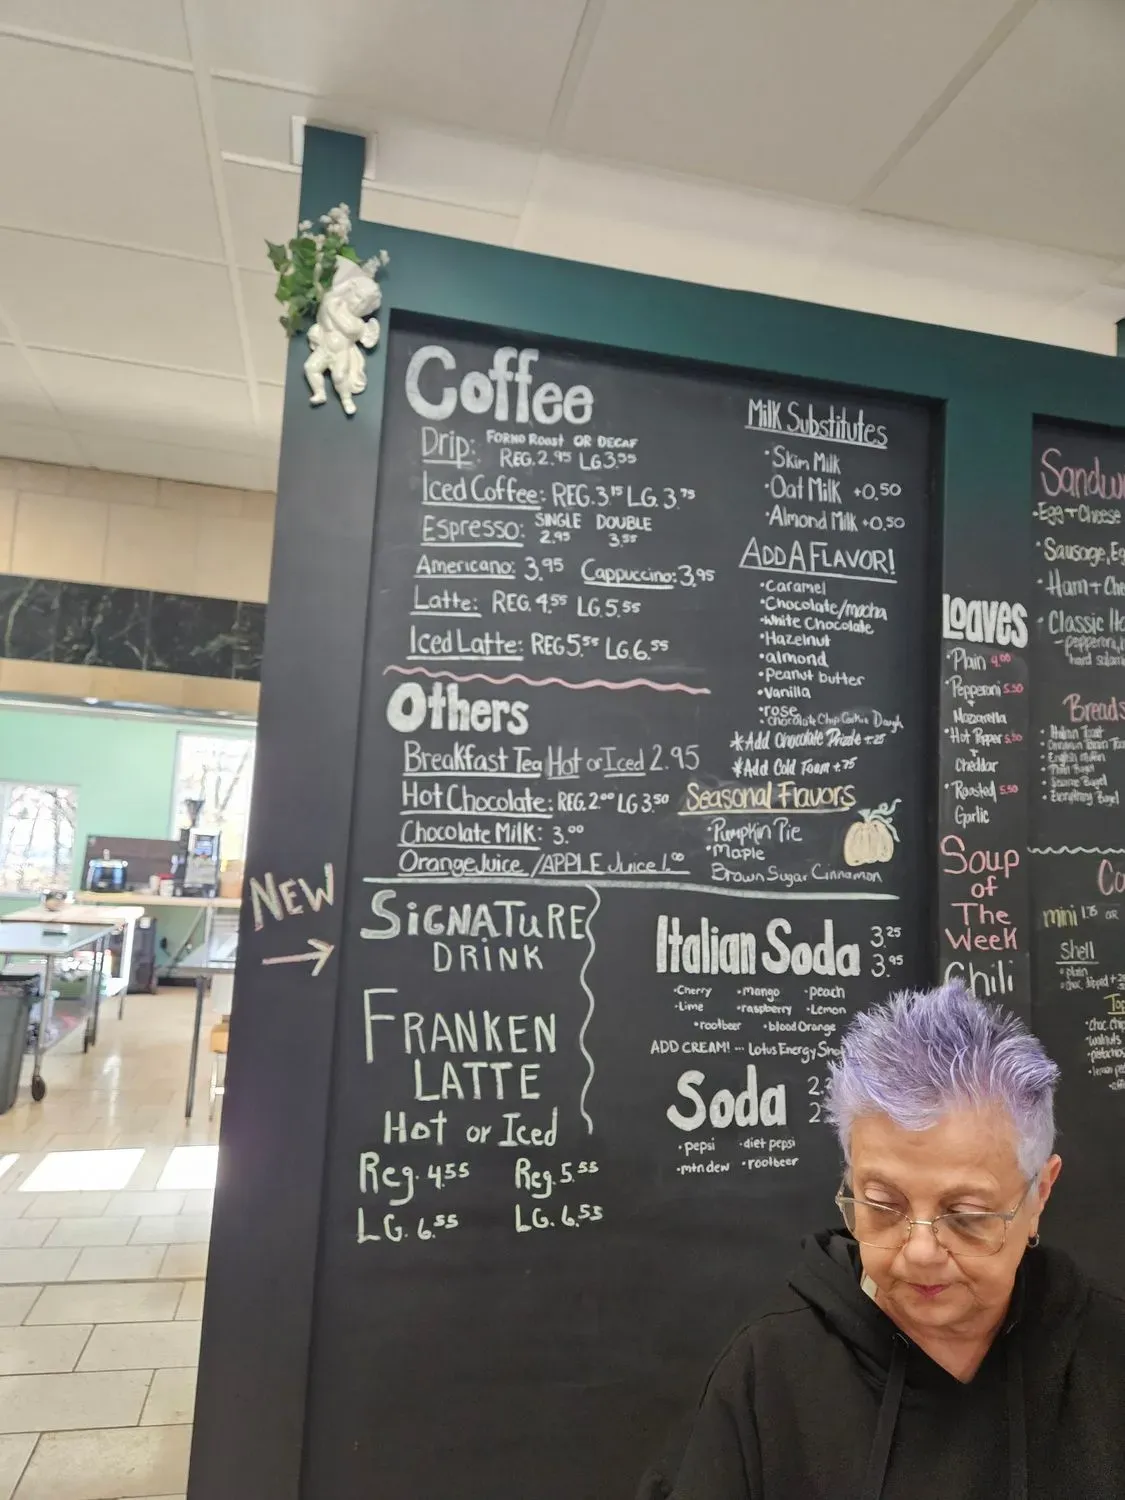 Coffee
Drip: FORNO ROAST OR DECAF
REG. 2.95 LG 3.55
Iced Coffee: REG. 3.15 LG. 3.75
Espresso: SINGLE DOUBLE
2.95 3.55
Americano: 3.95 Cappuccino: 3.95
Latte: REG. 4.55 LG. 5.55
Iced Latte: REG 5.55 LG. 6.55
Others
Breakfast Tea Hot or Iced 2.95
Hot Chocolate: REG. 2.00 LG 3.50
Chocolate Milk: 3.00
Orange Juice / APPLE Juice 1.00
NEW
SiGNATURE
DRiNK
FRANKEN
LATTE
Hot or Iced
Reg. 4.55 Reg. 5.55
LG. 6.55 LG. 6.55
Milk Substitutes
•Skim Milk
•Oat Milk +0.50
•Almond Milk +0.50
ADD A FLAVOR!
•Caramel
•Chocolate/mocha
•White Chocolate
•Hazelnut
•almond
•Peanut butter
•Vanilla
•rose
•Chocolate Chip Cookie Dough
*Add Chocolate Drizzle +.25
*Add Cold Foam +.75
Seasonal Flavors
•Pumpkin Pie
•Maple
Brown Sugar Cinnamon
Italian Soda 3.25
3.95
•Cherry •mango •peach
•Lime •raspberry •Lemon
•rootbeer •blood Orange
ADD CREAM! -- Lotus Energy
Soda
•pepsi •diet pepsi
•mtn dew •rootbeer
Loaves
•Plain 4.00
•Pepperoni 5.50
+
Mozzarella
•Hot Pepper 5.50
+
Cheddar
•Roasted 5.50
Garlic
Soup
of
The
Week
Chili
•Egg + Cheese
•Sausage,
•Ham +
•Classic
Breads
•Italian Toast
•English muffin
•Plain Bagel
•Sesame Bagel
•Everything Bagel
mini 1.75 OR
Shell
•plain
•walnuts